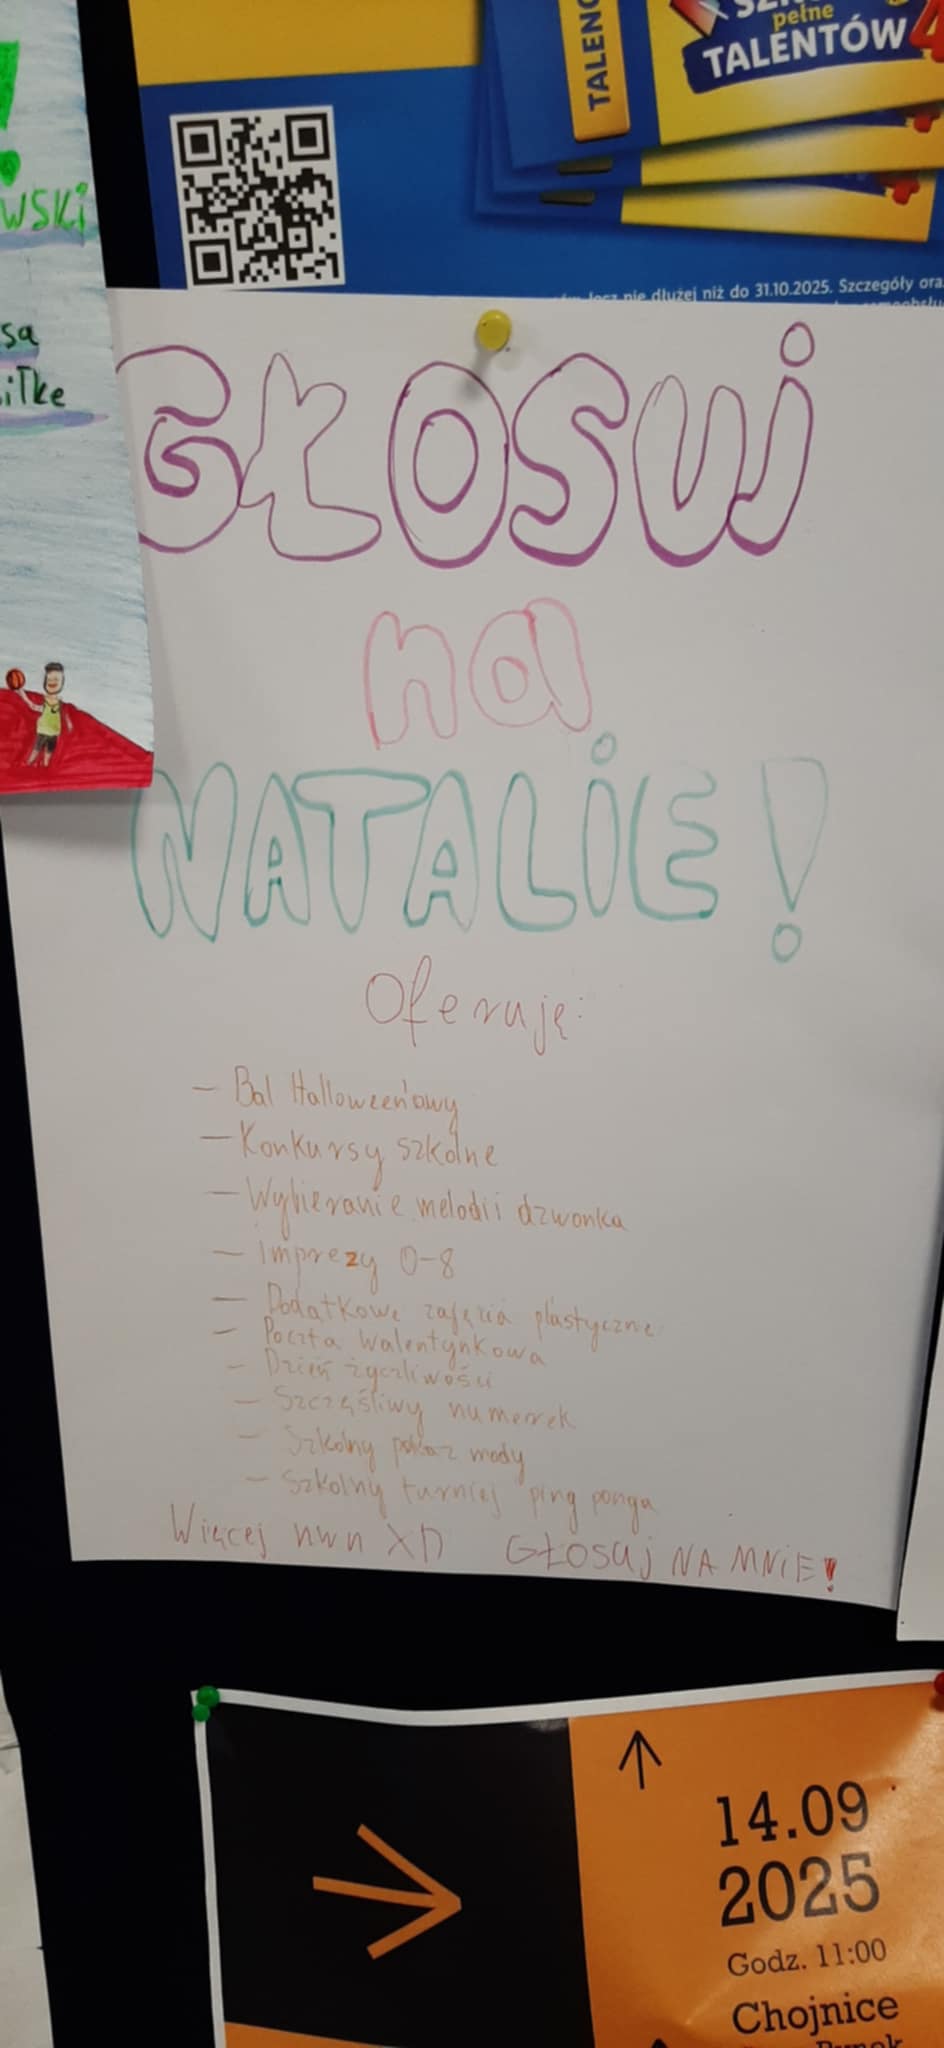 TALENO
SZK
pełne
TALENTÓW
nie dłużej niż do 31.10.2025. Szczegóły ora
WSKi
sa
GŁOSUj
na
NATALIE!
Oferuję:
- Bal Halloweeńowy
- Konkursy szkolne
- Wybieranie melodii dzwonka
- imprezy 0-8
- Dodatkowe zajęcia plastyczne
- Poczta Walentynkowa
- Dzień życzliwości
- Szczęśliwy numerek
- Szkolny pokaz mody
- Szkolny turniej ping ponga
Więcej nwn XD GŁOSUj NA MNiE!
14.09
2025
Godz. 11:00
Chojnice